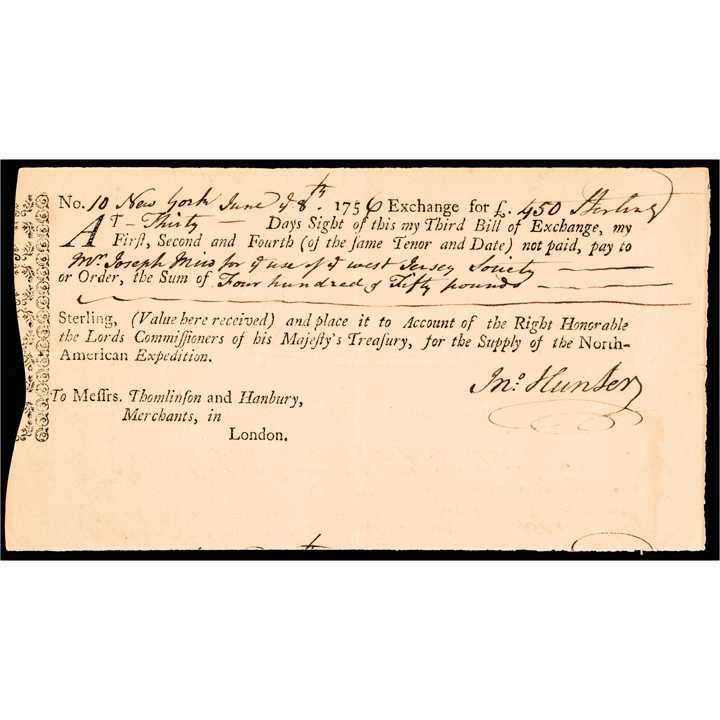 No. 10 New York June ye 8th. 1756 Exchange for £. 450 Sterling
AT – Thirty — Days Sight of this my Third Bill of Exchange, my
Firſt, Second and Fourth (of the ſame Tenor and Date) not paid, pay to
Mr. Joseph Mico for ye use of ye west Jersey Society
or Order, the Sum of Four hundred & Fifty pounds
Sterling, (Value here received) and place it to Account of the Right Honorable
the Lords Commiſſioners of his Majeſty's Treaſury, for the Supply of the North-
American Expedition.
Jno. Hunter
To Meſſrs. Thomlinſon and Hanbury,
Merchants, in
London.